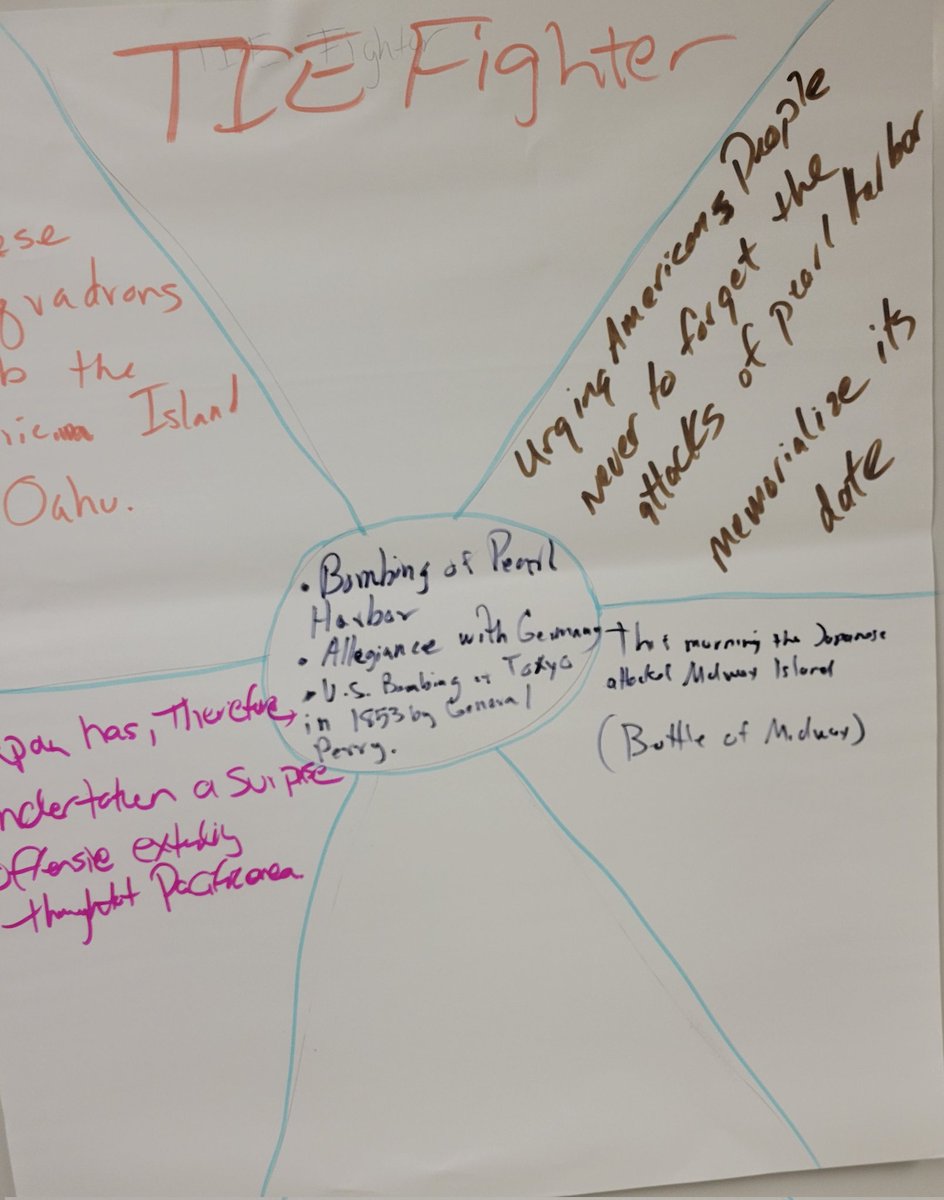 TIE Fighter
TIE Fighter
ese
quadrons
b the
Island
Oahu.
Urging Americans People
never to forget the
attacks of pearl Harbor
memorialize its
date
• Bombing of Pearl
Harbor
• Allegiance with Germany
• U.S. Bombing of Tokyo
in 1853 by General
Perry.
This morning the Japanese
attacked Midway Island
(Battle of Midway)
pan has, Therefore
ndertaken a surprise
offensie
Pacific area